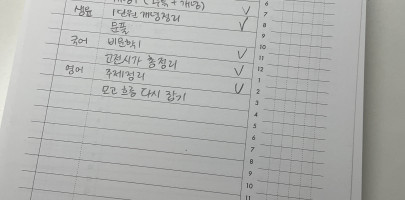 생윤 1단원 개념정리 ✓
문풀 ✓
국어 비문학1
고전시가 총정리 ✓
영어 주제정리 ✓
모고 흐름 다시 잡기 ✓
6
7
8
9
10
11
12
1
2
3
4
5
6
7
8
9
10
11